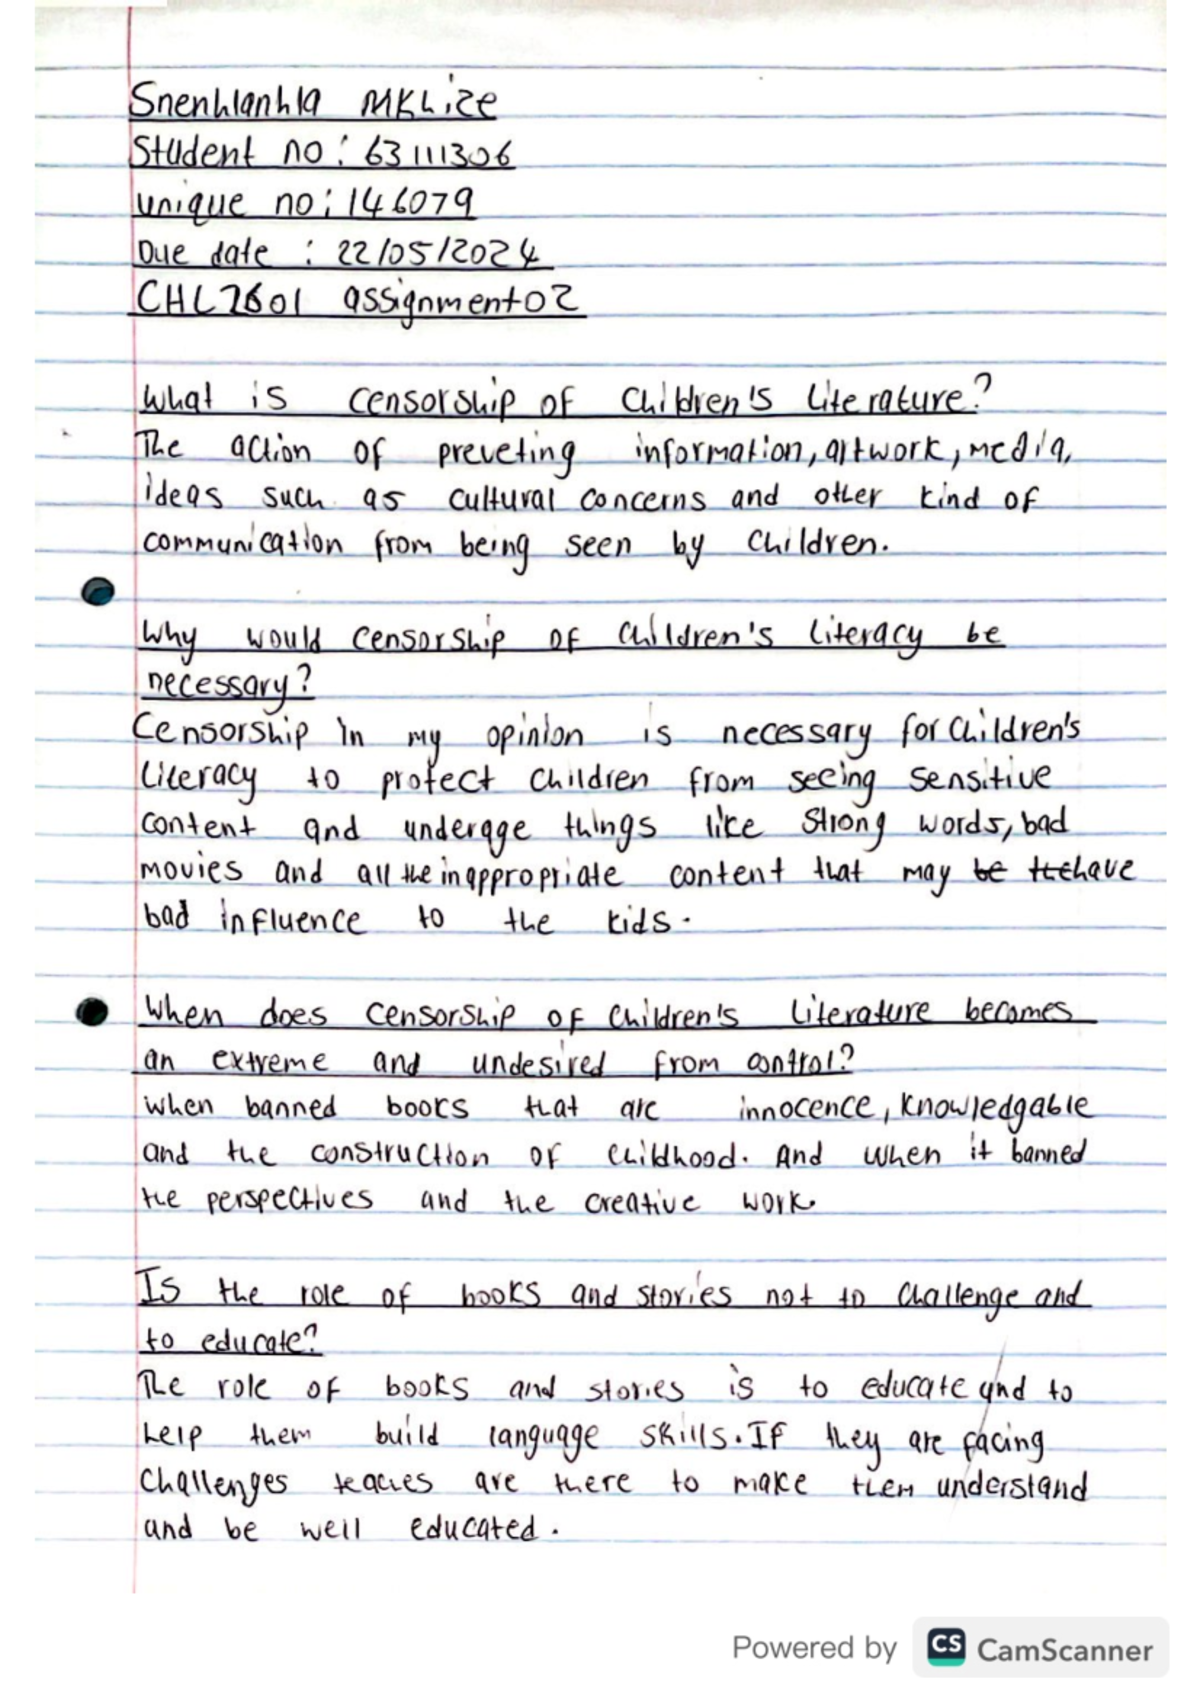 Snenhlanhla Mkhize
Student no : 63111306
unique no : 146079
Due date : 22/05/2024
CHL2601 assignment 02
What is censorship of Children's Literature?
The action of preveting information, artwork, media,
ideas such as cultural concerns and other kind of
communication from being seen by children.
Why would censorship of children's literacy be
necessary?
Censorship in my opinion is necessary for children's
literacy to protect children from seeing sensitive
content and underage things like strong words, bad
movies and all the inappropriate content that may be have
bad influence to the kids.
When does censorship of children's literature becomes
an extreme and undesired from control?
when banned books that are innocence, knowledgable
and the construction of childhood. And when it banned
the perspectives and the creative work.
Is the role of books and stories not to challenge and
to educate?
The role of books and stories is to educate and to
help them build language skills. If they are facing
challenges teaches are there to make them understand
and be well educated.
Powered by CS CamScanner